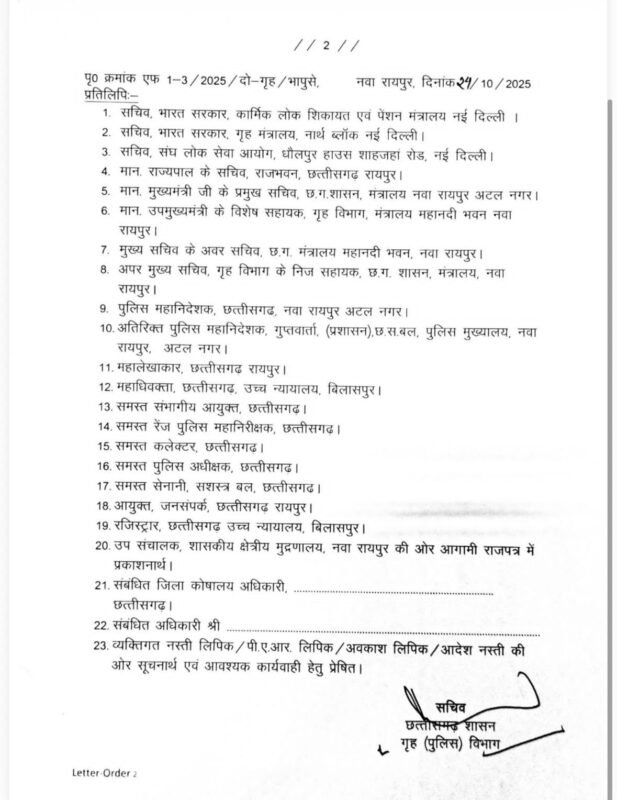 // 2 //
पृ0 क्रमांक एफ 1-3/2025/दो-गृह/भापुसे, नवा रायपुर, दिनांक 24/10/2025
प्रतिलिपि:-
1. सचिव, भारत सरकार, कार्मिक लोक शिकायत एवं पेंशन मंत्रालय नई दिल्ली ।
2. सचिव, भारत सरकार, गृह मंत्रालय, नार्थ ब्लॉक नई दिल्ली।
3. सचिव, संघ लोक सेवा आयोग, धौलपुर हाउस शाहजहां रोड, नई दिल्ली।
4. मान. राज्यपाल के सचिव, राजभवन, छत्तीसगढ़ रायपुर।
5. मान. मुख्यमंत्री जी के प्रमुख सचिव, छ.ग.शासन, मंत्रालय नवा रायपुर अटल नगर।
6. मान. उपमुख्यमंत्री के विशेष सहायक, गृह विभाग, मंत्रालय महानदी भवन नवा
रायपुर।
7. मुख्य सचिव के अवर सचिव, छ.ग. मंत्रालय महानदी भवन, नवा रायपुर।
8. अपर मुख्य सचिव, गृह विभाग के निज सहायक, छ.ग. शासन, मंत्रालय, नवा
रायपुर।
9. पुलिस महानिदेशक, छत्तीसगढ़, नवा रायपुर अटल नगर।
10. अतिरिक्त पुलिस महानिदेशक, गुप्तवार्ता, (प्रशासन),छ.स.बल, पुलिस मुख्यालय, नवा
रायपुर, अटल नगर।
11. महालेखाकार, छत्तीसगढ़ रायपुर।
12. महाधिवक्ता, छत्तीसगढ़, उच्च न्यायालय, बिलासपुर।
13. समस्त संभागीय आयुक्त, छत्तीसगढ़।
14. समस्त रेंज पुलिस महानिरीक्षक, छत्तीसगढ़।
15. समस्त कलेक्टर, छत्तीसगढ़।
16. समस्त पुलिस अधीक्षक, छत्तीसगढ़।
17. समस्त सेनानी, सशस्त्र बल, छत्तीसगढ़।
18. आयुक्त, जनसंपर्क, छत्तीसगढ़ रायपुर।
19. रजिस्ट्रार, छत्तीसगढ़ उच्च न्यायालय, बिलासपुर।
20. उप संचालक, शासकीय क्षेत्रीय मुद्रणालय, नवा रायपुर की ओर आगामी राजपत्र में
प्रकाशनार्थ।
21. संबंधित जिला कोषालय अधिकारी, ......................................
छत्तीसगढ़।
22. संबंधित अधिकारी श्री ............................................................
23. व्यक्तिगत नस्ती लिपिक/पी.ए.आर. लिपिक/अवकाश लिपिक/आदेश नस्ती की
ओर सूचनार्थ एवं आवश्यक कार्यवाही हेतु प्रेषित।
सचिव
छत्तीसगढ़ शासन
गृह (पुलिस) विभाग
Letter-Order 2